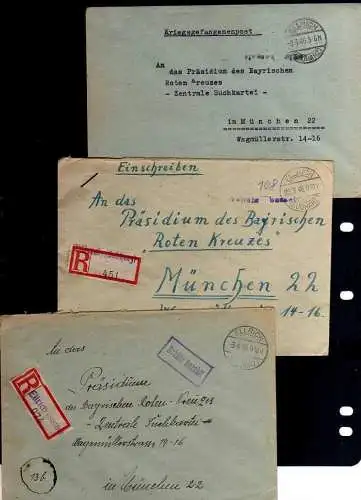 Kriegsgefangenenpost
ELLRICH
An
das Präsidium des Bayrischen
Roten Kreuzes
- Zentrale Suchkartei -
in München 22
Wagmüllerstr. 14-16
Einschreiben
108
An das
Präsidium des Bayrischen
"Roten Kreuzes"
R
451
München 22
14-16.
ELLRICH
Gebühr bezahlt
An das
Präsidium
des Bayrischen Roten-Kreuzes
- Zentrale Suchkartei -
R
Wagmüllerstrasse 14-16
13b
in München 22